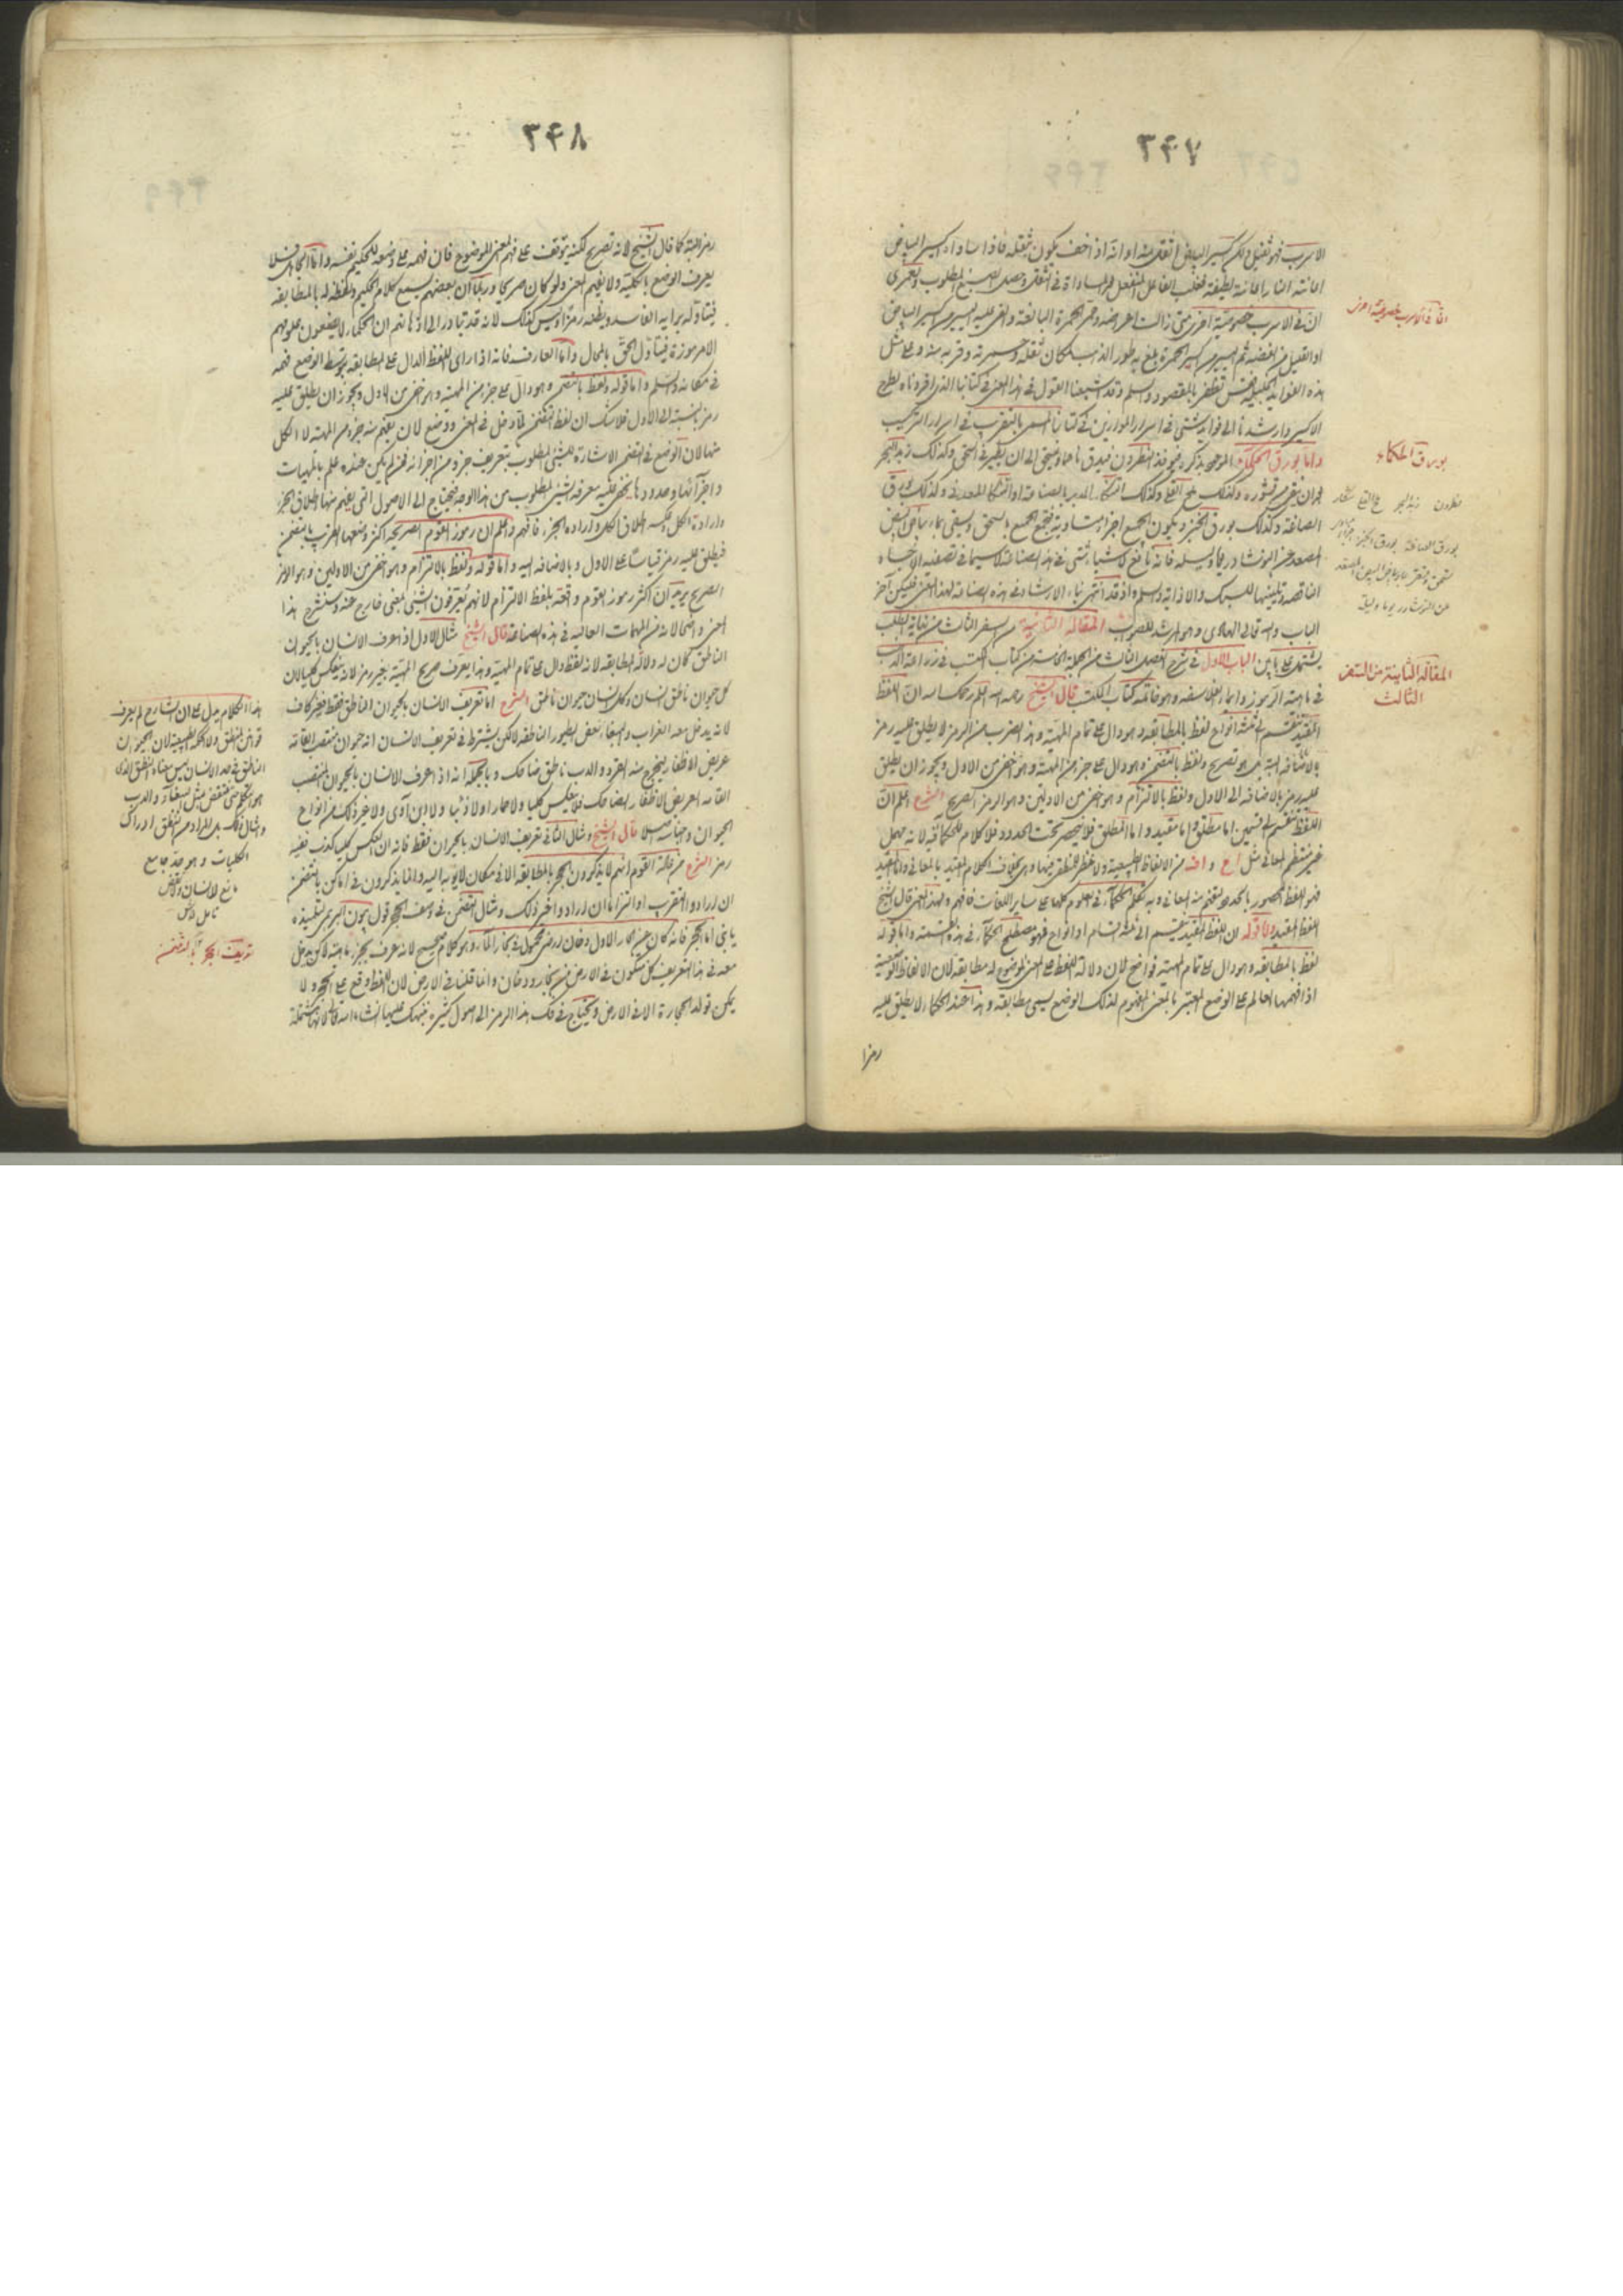 ٣۴٧
الاسرب فهو ثقيل ولكن اكسير البياض اثقل منه او انه اذا اخف يكون بثقله فاذا ساواه اكسير البياض
اعانته النار اعانة لطيفة فغلب الفاعل المنفعل المساواة في الثقل وحصل الصبغ المطلوب ولعمرى
ان في الاسرب خصوصية اخرى متى زالت اعراضه وخمر الخمرة البالغة والقى عليه اليسير من اكسير البياض
او القليل من الفضة ثم اليسير من اكسير الحمرة بلغ به طور الذهب لمكان ثقله وقربه منه وعلى مثل
هذه الفوايد الجليلة تظفر بالمقصود وسلم وقد اشبعنا القول في هذا المعنى في كتابنا الذى افردناه لطرح
الاكسير وارشدنا الى فوايد شتى في اسرار الموازين في كتابنا المسمى بالتقريب في اسرار التركيب
واما بورق الحكماء الموعود بذكره فيوخذ النطرون فيدق ناعما ويسقى الى ان يظهر في السحق وكذلك زبد البحر
بعد ان ينقى من قشوره وكذلك ملح القلى وكذلك الشكار المدبر الصناعة او الشكار المعدنى وكذلك بورق
الصاغة وكذلك بورق الخبز ويكون الجميع اجزاء متساوية فيجمع الجميع بالسحق ويسقى بماء بياض البيض
المصعد عن النوشادر وسلم فانه نافع لاشياء شتى في هذه الصناعة لا سيما في تصفية الاجساد
الناقصة وتليينها للسبك والاذابة وسلم واذ قد انتهى بنا الارشاد في هذه الصناعة لهذا المعنى فليكن آخر
الباب والله تعالى الهادى وهو المرشد للصواب المقالة الثانية من السفر الثالث من نهاية الطلب
يشتمل على بابين الباب الاول في شرح الفصل الثالث من الجملة الخامسة من كتاب المكتسب في زراعة الذهب
في ماهية الرموز وايماء الفلاسفة وهو خاتمة كتاب المكتسب قال الشيخ رحمه الله اعلم رحمك الله ان اللفظ
المقيد ينقسم الى ثلثة انواع لفظ بالمطابقة وهو دال على تمام المهية وهذا الضرب من الرمز لا يطلق عليه رمز
بالاضافة البتة بل هو تصريح ولفظ بالتضمن وهو دال على جزء من المهية وهو اخفى من الاول ويجوز ان يطلق
عليه رمز بالاضافة الى الاول ولفظ بالالتزام وهو اخفى من الاولين وهو الرمز الصريح الشرح اعلم ان
اللفظ ينقسم الى قسمين اما مطلق واما مقيد واما المطلق فلا ينحصر تحت الحدود فلا كلام للحكماء فيه لانه مهمل
غير منتظم المعانى مثل اح و اف من الالفاظ الطبيعية ولا حظ للمنطق فيها وهى بخلاف الكلام المقيد بالمعانى واما المقيد
فهو اللفظ المحصور بالحدود تفهم منه المعانى وبه تكلم الحكماء في العلوم كلها على ساير اللغات فافهم ولهذا المعنى قال الشيخ
اللفظ المقيد واما قوله ان اللفظ المقيد ينقسم الى ثلثة اقسام او انواع فهو مصطلح الحكماء في هذه القسمة واما قوله
لفظ بالمطابقة وهو دال على تمام المهية فواضح لان دلالة اللفظ على المعنى الموضوع له مطابقة لان الالفاظ الوضعية
اذا فهمها العالم على الوضع المعتبر بالمعنى المفهوم لذلك الوضع يسمى مطابقة وهذا عند الحكماء لا يطلق عليه
رمزا
انّ في الاسرب خصوصية اخرى
بورق الحكماء
نطرون زبد البحر ملح القلى شكار
بورق الصاغة بورق الخبز
المقالة الثانية من السفر
الثالث
٣۴٨
رمز البتة كما قال الشيخ لانه تصريح لكنه يتوقف على فهم المعنى الموضوع فان فهمه على وضعه الحكيم نفسه واما الجاهل فلا
يعرف الوضع بالكلية ولا يفهم المعنى ولو كان صريحا وربما ان بعضهم يسمع كلام الحكيم ولفظه له بالمطابقة
فيتأوله برايه الفاسد ويظنه رمزا وليس كذلك لانه قد تبادر الى اذهانهم ان الحكماء لا يضعون علومهم
الا مرموزة فيتأول الحق بالمحال واما العارف فانه اذا راى اللفظ الدال على المطابقة بوسط الوضع فهمه
في مكانه وسلم واما قوله ولفظ بالتضمن وهو دال على جزء من المهية وهو اخفى من الاول ويجوز ان يطلق عليه
رمز بالنسبة الى الاول فلا شك ان لفظ التضمن داخل في المعنى ووضع لان يفهم منه جزء من المهية لا الكل
منها لان الوضع في التضمن الاشارة للشئ المطلوب بتعريف جزء من اجزائه فمن لم يكن عنده علم بالمهيات
واجزائها وحدودها يخفى عليه معرفة الشئ المطلوب من هذا الوجه فيحتاج الى الاصول التى يفهم منها اطلاق الجزء
وارادة الكل وعكسه اطلاق الكل وارادة الجزء فافهم واعلم ان رموز القوم الصريحة اكثر وضعها الضرب بالتضمن
فيطلق عليه رمز قياسا على الاول وبالاضافة اليه واما قوله ولفظ بالالتزام وهو اخفى من الاولين وهو الرمز
الصريح يريد ان اكثر رموز القوم واقعة بلفظ الالتزام لانهم يعرفون الشئ بمعنى خارج عنه وسنشرح هذا
المعنى واضحا لانه من المهمات العالية في هذه الصناعة قال الشيخ مثال الاول اذا عرف الانسان بالحيوان
الناطق كان له دلالة المطابقة لانه لفظ دال على تمام المهية وهذا يعرف صريح المهية بغير رمز لانه ينعكس كليا لان
كل حيوان ناطق انسان وكل انسان حيوان ناطق الشرح اما تعريف الانسان بالحيوان الناطق فقط فغير كاف
لانه يدخل معه الغراب والببغاء وبعض الطيور الناطقة لاكن يشترط في تعريف الانسان انه حيوان منتصب القامة
عريض الاظفار ليخرج منه القرد والدب ناطق ضاحك وبالجملة انه اذا عرف الانسان بالحيوان المنتصب
القامة العريض الاظفار الضاحك فلا ينعكس كليا ولا حمارا ولا ذئبا ولا ابن آوى ولا غير ذلك من انواع
الحيوان واجناسه اصلا قال الشيخ ومثال الثانى تعريف الانسان بالحيوان فقط فانه ان انعكس كليا كذب ففيه
رمز الشرح من عادة القوم انهم لا يذكرون الحجر بالمطابقة الا في مكان لا يؤبه اليه وانما يذكرون في اماكن بالتضمن
ان ارادوا التقريب او التزاما ان ارادوا غير ذلك ومثال التضمن في وصف الحجر قول بيون البربرى لتلميذه
يا بنى اما الحجر فانه كان من بخار الاول ودخان ارضى محمول في بخار الماء وهو كلام صحيح لانه عرف بجزء مهيته لاكن يدخل
معه في هذا التعريف كل متكون في الارض من بخار ودخان وانما قلنا في الارض لان اللفظ وقع على الحجر ولا
يمكن تولد الحجارة الا في الارض ويحتاج في فك هذا الرمز الى اصول كثيرة ننبهك عليها ان شاء الله تعالى لانها مشتملة
هذا الكلام يدل على ان الشارح لم يعرف
قوانين المنطق ولا الحكمة الطبيعية لان الحيوان
الناطق في حد الانسان ليس معناه النطق الذى
هو التكلم حتى ينتقض بمثل الببغاء والدب
وامثال ذلك بل المراد من النطق ادراك
الكليات وهو حد جامع
مانع للانسان
تعريف الحجر بالتضمن